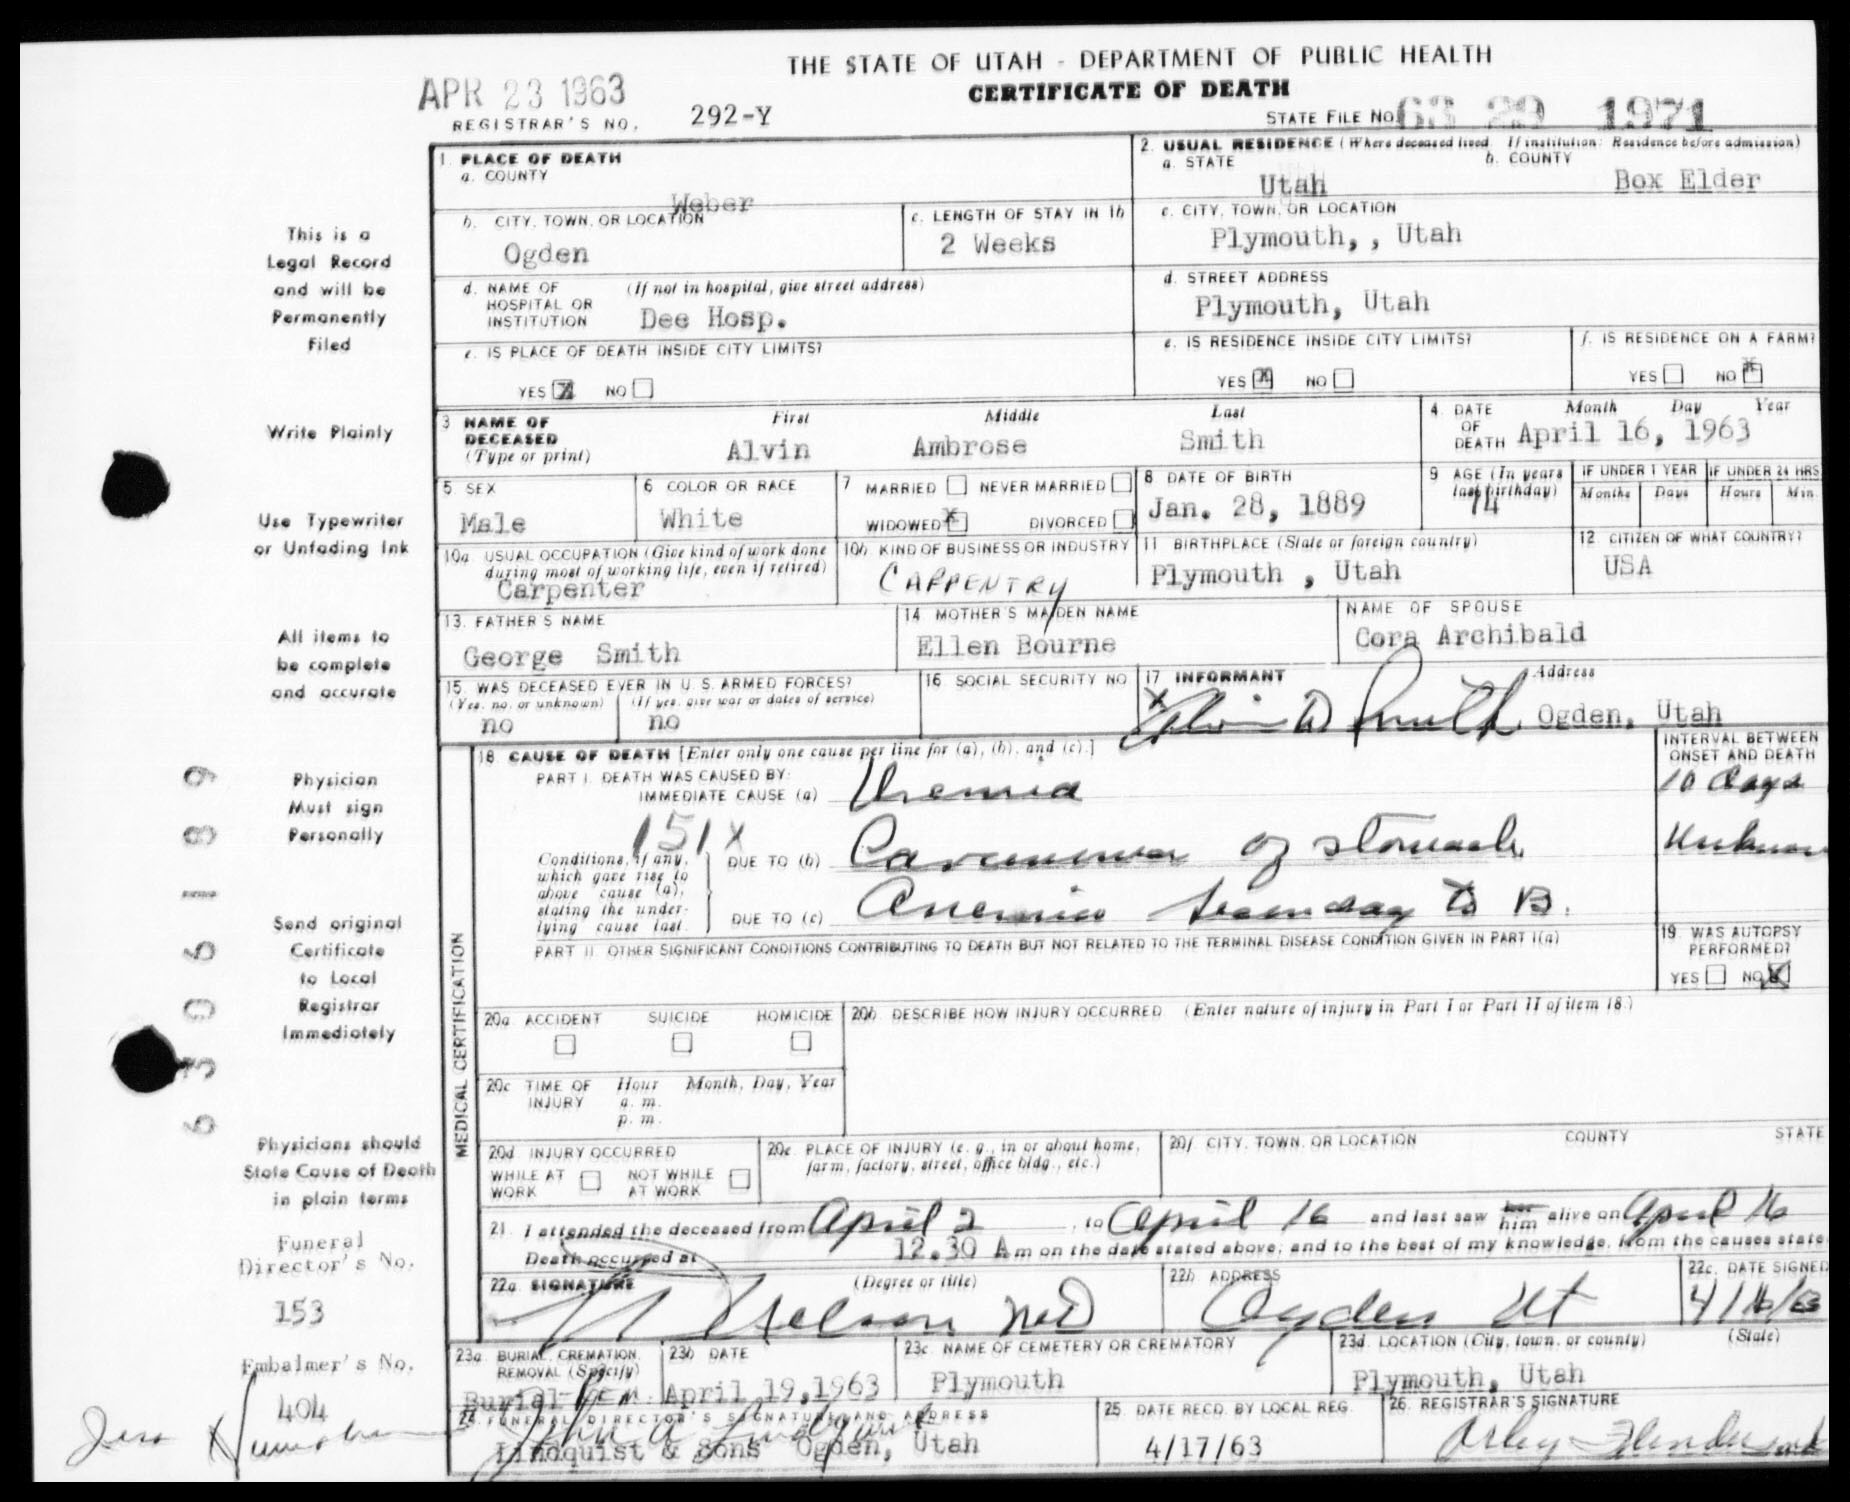 THE STATE OF UTAH - DEPARTMENT OF PUBLIC HEALTH
CERTIFICATE OF DEATH
APR 23 1963
REGISTRAR'S NO. 292-Y
STATE FILE NO. 63 29 1971
1. PLACE OF DEATH
a. COUNTY
Weber
2. USUAL RESIDENCE (Where deceased lived. If institution: Residence before admission)
a. STATE b. COUNTY
Utah Box Elder
b. CITY, TOWN, OR LOCATION
Ogden
c. LENGTH OF STAY IN 1b
2 Weeks
c. CITY, TOWN, OR LOCATION
Plymouth, , Utah
d. NAME OF (If not in hospital, give street address)
HOSPITAL OR
INSTITUTION Dee Hosp.
d. STREET ADDRESS
Plymouth, Utah
e. IS PLACE OF DEATH INSIDE CITY LIMITS?
YES X NO
e. IS RESIDENCE INSIDE CITY LIMITS?
YES X NO
f. IS RESIDENCE ON A FARM?
YES NO X
3 NAME OF DECEASED (Type or print)
First Middle Last
Alvin Ambrose Smith
4. DATE OF DEATH
Month Day Year
April 16, 1963
5 SEX
Male
6 COLOR OR RACE
White
7 MARRIED NEVER MARRIED
WIDOWED X DIVORCED
8 DATE OF BIRTH
Jan. 28, 1889
9 AGE (In years last birthday)
74
IF UNDER 1 YEAR IF UNDER 24 HRS
Months Days Hours Min.
10a USUAL OCCUPATION (Give kind of work done
during most of working life, even if retired)
Carpenter
10b KIND OF BUSINESS OR INDUSTRY
CARPENTRY
11 BIRTHPLACE (State or foreign country)
Plymouth , Utah
12. CITIZEN OF WHAT COUNTRY?
USA
13. FATHER'S NAME
George Smith
14 MOTHER'S MAIDEN NAME
Ellen Bourne
NAME OF SPOUSE
Cora Archibald
15. WAS DECEASED EVER IN U. S. ARMED FORCES?
(Yes, no, or unknown) (If yes, give war or dates of service)
no no
16. SOCIAL SECURITY NO
17 INFORMANT Address
X Alvin D Smith Ogden, Utah
18 CAUSE OF DEATH [Enter only one cause per line for (a), (b), and (c).]
PART I. DEATH WAS CAUSED BY:
IMMEDIATE CAUSE (a) Uremia
151X
Conditions, if any,
which gave rise to
above cause (a),
stating the under-
lying cause last.
DUE TO (b) Carcinoma of stomach
DUE TO (c) Anemia secondary to B.
INTERVAL BETWEEN
ONSET AND DEATH
10 days
Unknown
PART II. OTHER SIGNIFICANT CONDITIONS CONTRIBUTING TO DEATH BUT NOT RELATED TO THE TERMINAL DISEASE CONDITION GIVEN IN PART I(a)
19. WAS AUTOPSY
PERFORMED?
YES NO X
MEDICAL CERTIFICATION
20a ACCIDENT SUICIDE HOMICIDE
20b DESCRIBE HOW INJURY OCCURRED (Enter nature of injury in Part I or Part II of item 18.)
20c TIME OF INJURY
Hour Month, Day, Year
a. m.
p. m.
20d INJURY OCCURRED
WHILE AT WORK NOT WHILE AT WORK
20e. PLACE OF INJURY (e. g., in or about home,
farm, factory, street, office bldg., etc.)
20f. CITY, TOWN, OR LOCATION COUNTY STATE
21. I attended the deceased from April 2, to April 16 and last saw her him alive on April 16
Death occurred at 12.30 A m on the date stated above; and to the best of my knowledge, from the causes state
22a SIGNATURE (Degree or title)
Nelson MD
22b ADDRESS
Ogden Ut
22c. DATE SIGNED
4/16/63
23a BURIAL, CREMATION,
REMOVAL (Specify)
Burial-Rem.
23b DATE
April 19, 1963
23c. NAME OF CEMETERY OR CREMATORY
Plymouth
23d. LOCATION (City, town, or county) (State)
Plymouth, Utah
24. FUNERAL DIRECTOR'S SIGNATURE AND ADDRESS
John A Lindquist
Lindquist & Sons Ogden, Utah
25 DATE RECD. BY LOCAL REG.
4/17/63
26. REGISTRAR'S SIGNATURE
This is a
Legal Record
and will be
Permanently
Filed
Write Plainly
Use Typewriter
or Unfading Ink
All items to
be complete
and accurate
Physician
Must sign
Personally
Send original
Certificate
to Local
Registrar
Immediately
Physicians should
State Cause of Death
in plain terms
Funeral
Director's No.
153
Embalmer's No.
404